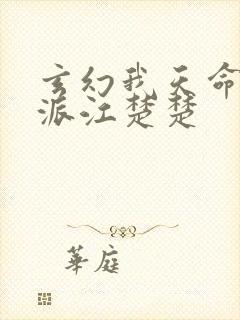 玄幻我天命
派江楚楚
華庭